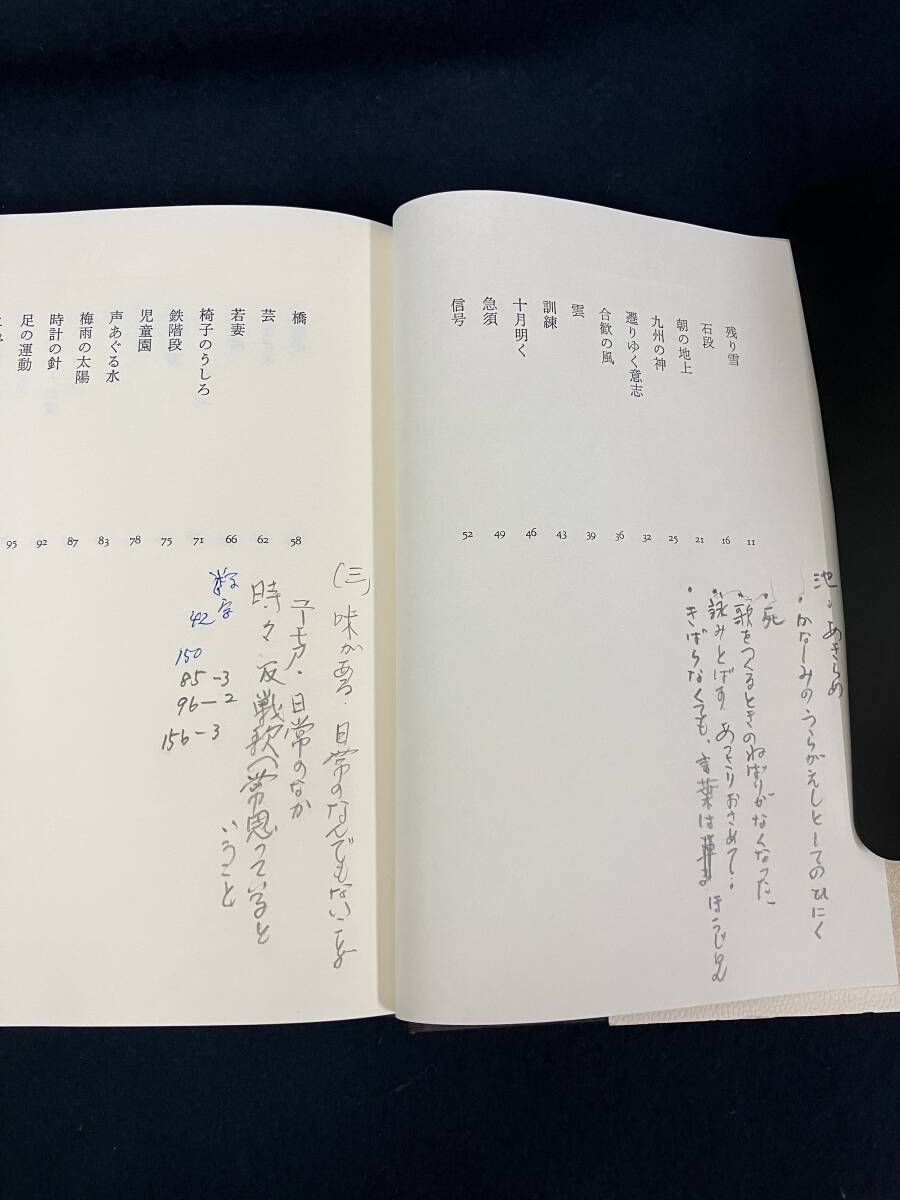 残り雪 11
石段 16
朝の地上 21
九州の神 25
遷りゆく意志 32
合歓の風 36
雲 39
訓練 43
十月明く 46
急須 49
信号 52
あきらめ
・かなしみのうらがえしとしてのひにく
・死
・歌をつくるときのねばりがなくなった
・詠みとばす あっさりおさめて
・きばらなくても、言葉は
橋 58
芸 62
若妻 66
椅子のうしろ 71
鉄階段 75
児童園 78
声あぐる水 83
梅雨の太陽 87
時計の針 92
足の運動 95
(三) 味がある・日常のなんでもないことを
・日常のなか
時々、反戦歌 常思っていると
いうこと
数字
42
150
85-3
96-2
156-3